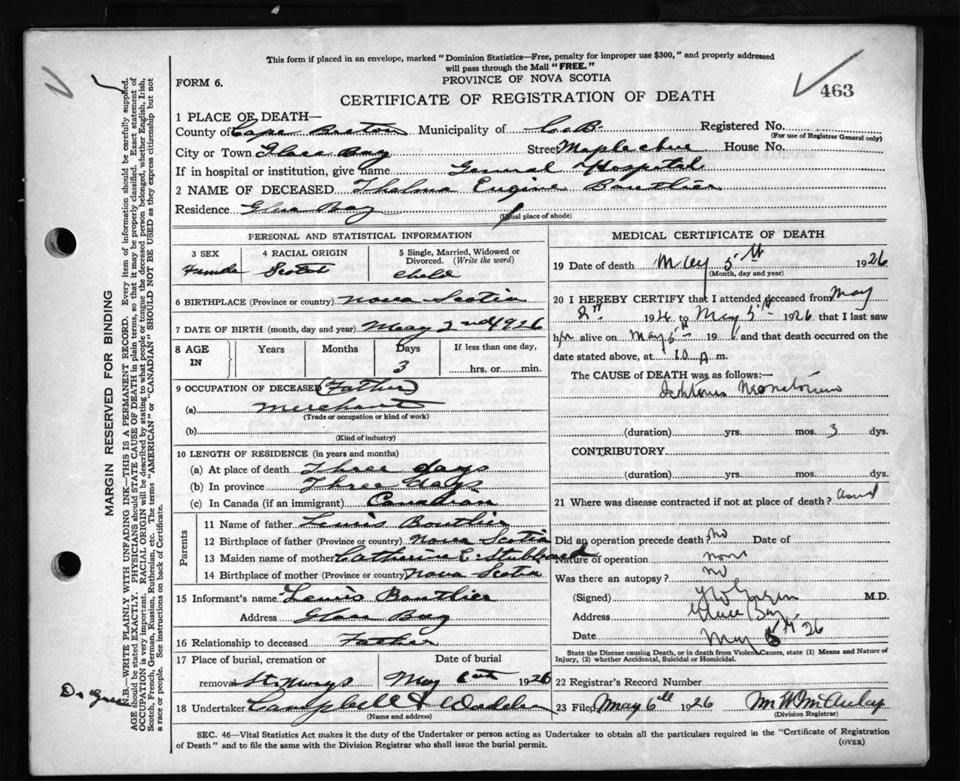 This form if placed in an envelope, marked "Dominion Statistics—Free, penalty for improper use $300," and properly addressed
will pass through the Mail "FREE."
PROVINCE OF NOVA SCOTIA
FORM 6.
463
CERTIFICATE OF REGISTRATION OF DEATH
1 PLACE OF DEATH—
County of Cape Breton Municipality of C.B. Registered No.
(For use of Registrar General only)
City or Town Glace Bay Street House No.
If in hospital or institution, give name General Hospital
2 NAME OF DECEASED Thelma Eugine Boutlier
Residence Glace Bay
(Usual place of abode)
PERSONAL AND STATISTICAL INFORMATION
3 SEX
Female
4 RACIAL ORIGIN
Scotch
5 Single, Married, Widowed or Divorced. (Write the word)
child
6 BIRTHPLACE (Province or country) Nova Scotia
7 DATE OF BIRTH (month, day and year) May 2nd 1926
8 AGE IN
Years Months Days If less than one day,
3 hrs. or min.
9 OCCUPATION OF DECEASED (Father)
(a) Merchant
(Trade or occupation or kind of work)
(b)
(Kind of industry)
10 LENGTH OF RESIDENCE (in years and months)
(a) At place of death Three days
(b) In province Three days
(c) In Canada (if an immigrant) Canadian
Parents
11 Name of father Lewis Boutlier
12 Birthplace of father (Province or country) Nova Scotia
13 Maiden name of mother Catherine E. Stubbard
14 Birthplace of mother (Province or country) Nova Scotia
15 Informant's name Lewis Boutlier
Address Glace Bay
16 Relationship to deceased Father
17 Place of burial, cremation or Date of burial
removal St. Marys May 6th 1926
18 Undertaker Campbell &
(Name and address)
MEDICAL CERTIFICATE OF DEATH
19 Date of death May 5th 1926
(Month, day and year)
20 I HEREBY CERTIFY that I attended deceased from May
192 to May 5th 1926 that I last saw
h alive on May 5th 1926 and that death occurred on
date stated above, at 10 A m.
The CAUSE of DEATH was as follows:—
Icterus Neonatorum
(duration) yrs. mos. 3 dys.
CONTRIBUTORY
(duration) yrs. mos. dys.
21 Where was disease contracted if not at place of death?
Did an operation precede death? No Date of
Nature of operation none
Was there an autopsy? no
(Signed) M.D.
Address Glace Bay
Date May 5th 26
State the Disease causing Death, or in death from Violent Causes, state (1) Means and Nature of
Injury, (2) whether Accidental, Suicidal or Homicidal.
22 Registrar's Record Number
23 Filed May 6th 1926
(Division Registrar)
SEC. 46—Vital Statistics Act makes it the duty of the Undertaker or person acting as Undertaker to obtain all the particulars required in the "Certificate of Registration
of Death" and to file the same with the Division Registrar who shall issue the burial permit.
(OVER)
MARGIN RESERVED FOR BINDING
N.B.—WRITE PLAINLY WITH UNFADING INK—THIS IS A PERMANENT RECORD. Every item of information should be carefully supplied.
AGE should be stated EXACTLY. PHYSICIANS should STATE CAUSE OF DEATH in plain terms, so that it may be properly classified. Exact statement of
OCCUPATION is very important. RACIAL ORIGIN will be described by stating to what people or tongue the deceased person belonged, whether English, Irish,
Scotch, French, German, Russian, Ruthenian, etc. The terms "AMERICAN" or "CANADIAN" SHOULD NOT BE USED as they express citizenship but not
a race or people. See instructions on back of Certificate.